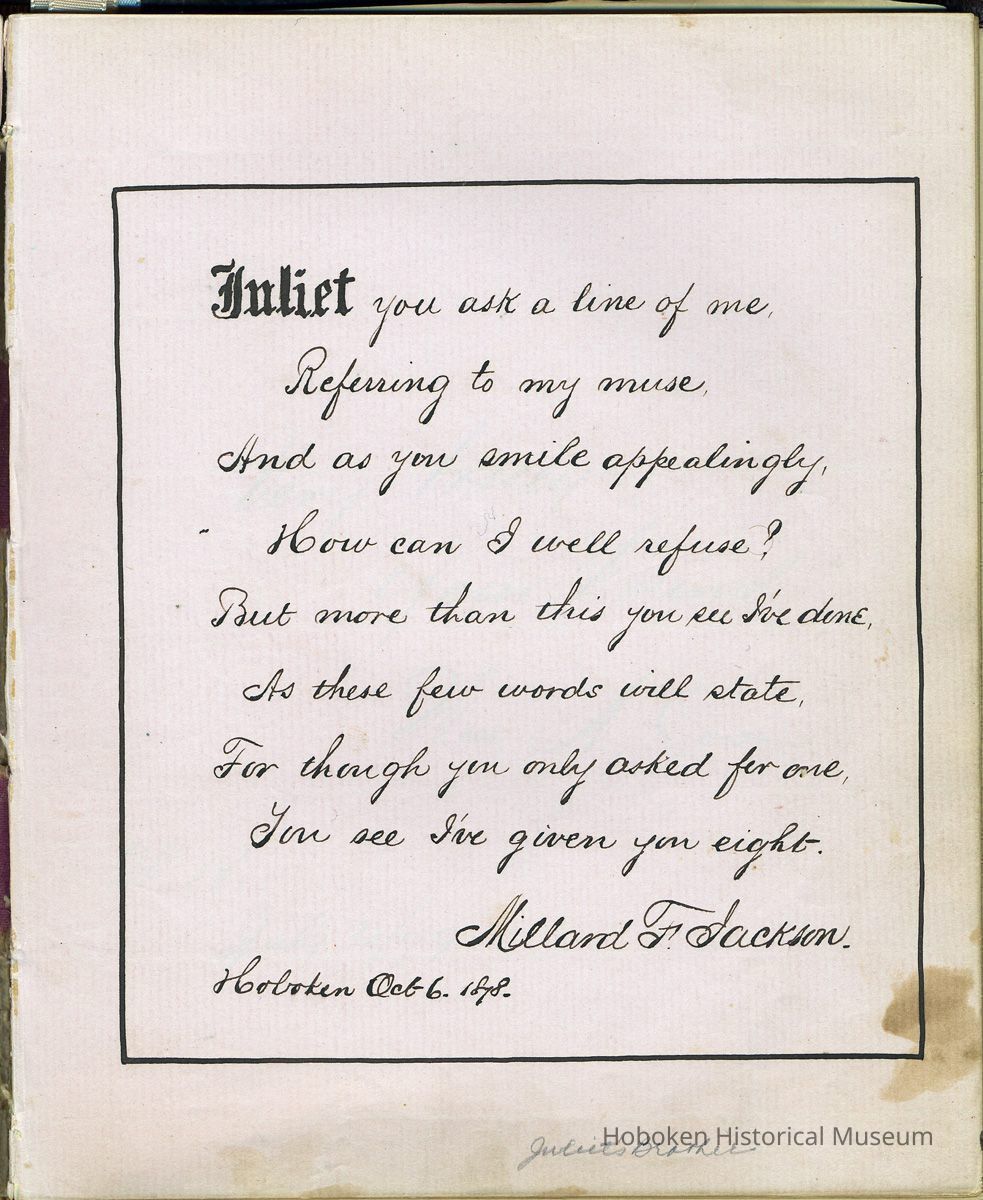 Juliet you ask a line of me,
Referring to my muse,
And as you smile appealingly,
How can I well refuse?
But more than this you see I've done,
As these few words will state,
For though you only asked for one,
You see I've given you eight.
Millard F. Jackson.
Hoboken Oct 6. 1878.
Hoboken Historical Museum
Juliet's Brother